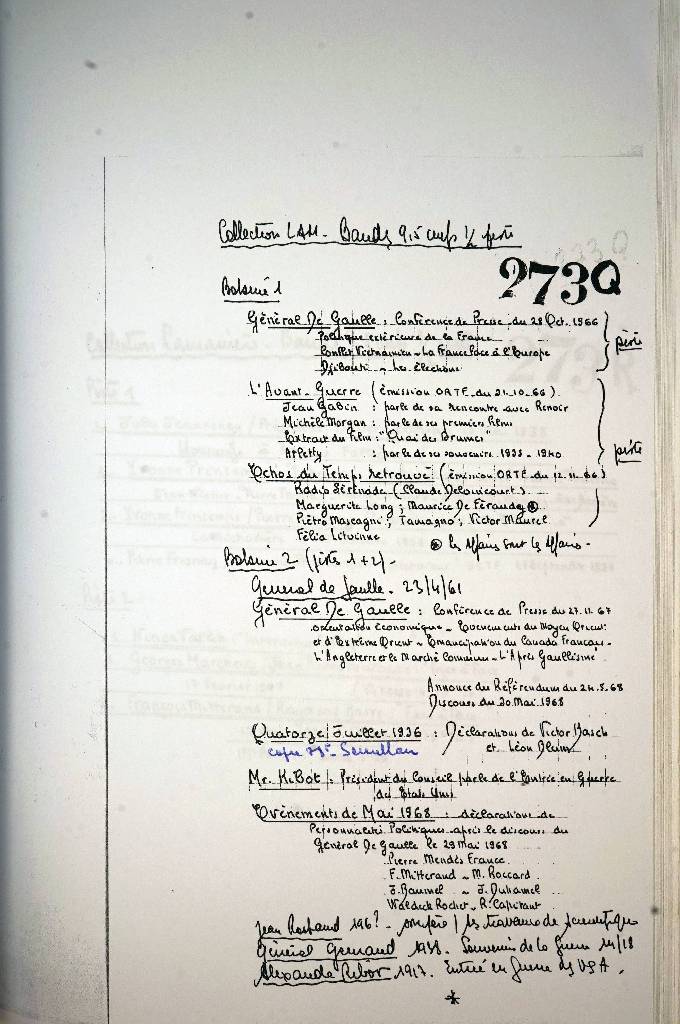 Collection LAM - Bande 9,5 cm/s 1/2 piste
273Q
Bobine 1
Général De Gaulle : Conférence de Presse du 28 Oct. 1966
Politique extérieure de la France
Conflit Vietnamien - La France face à l'Europe
Djibouti - Les élections
piste
L'Avant-Guerre (émission ORTF du 21-10-66)
Jean Gabin : parle de sa rencontre avec Renoir
Michèle Morgan : parle de ses premiers films
Extrait du Film : "Quai des Brumes"
Arletty : parle de ses souvenirs 1935 - 1940
piste
Echos du Temps retrouvé (émission ORTF du 12-11-66)
Radio Sérénade (Claude Delvincourt)
Marguerite Long ; Maurice De Féraudy ⊛
Piétro Mascagni ; Tamagno ; Victor Maurel
Félia Litvinne
⊛ les affaires sont les affaires -
Bobine 2 (pistes 1+2) -
General de Gaulle - 23/4/61
Général De Gaulle : Conférence de Presse du 27-11-67
orientation économique - Evènements du Moyen Orient
et d'Extrême Orient - Emancipation du Canada Français -
L'Angleterre et le Marché Commun - L'Après Gaullisme
Annonce du Référendum du 24-5-68
Discours du 30 Mai 1968
Quatorze Juillet 1936 : Déclarations de Victor Basch
et Léon Blum
copie Mr
Mr. Ribot : Président du Conseil parle de l'Entrée en Guerre
des Etats Unis
Evènements de Mai 1968 : déclarations de
Personnalités Politiques après le discours du
Général De Gaulle le 29 Mai 1968
Pierre Mendès France
F. Mitterand - M. Roccard
J. Baumel - J. Duhamel
Waldeck Rochet - R. Capitant
Jean Rostand 196? - / les travaux de scientifique
Général 1938. Souvenir de la Guerre 14/18
Alexandre Ribot 1917. Entrée en Guerre des USA.